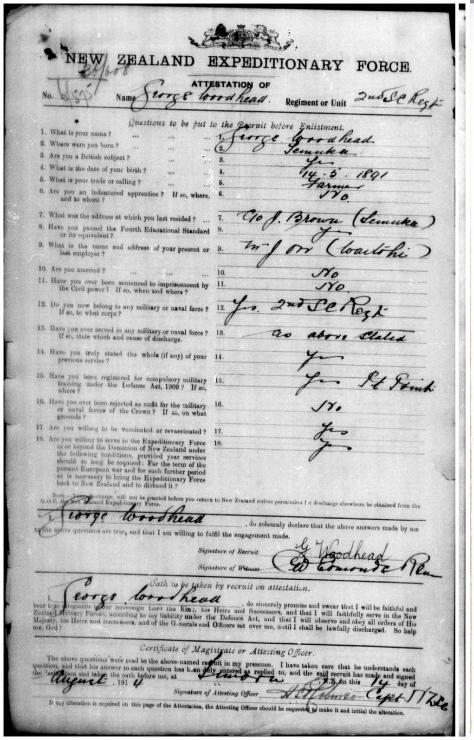 NEW ZEALAND EXPEDITIONARY FORCE.
ATTESTATION OF
No. Name George Woodhead. Regiment or Unit 2nd S C Regt
Questions to be put to the Recruit before Enlistment.
1. What is your name? 1. George Woodhead.
2. Where were you born? 2. Temuka.
3. Are you a British subject? 3. Yes
4. What is the date of your birth? 4. 14-5-1891
5. What is your trade or calling? 5. Farmer
6. Are you an indentured apprentice? If so, where, 6. No.
and to whom?
7. What was the address at which you last resided? 7. C/o J. Brown (Temuka)
8. Have you passed the Fourth Educational Standard 8. Yes
or its equivalent?
9. What is the name and address of your present or 9. Mr J Orr (Waitohi)
last employer?
10. Are you married? 10. No
11. Have you ever been sentenced to imprisonment by 11. No.
the Civil power? If so, when and where?
12. Do you now belong to any military or naval force? 12. Yes. 2nd S C Regt
If so, to what corps?
13. Have you ever served in any military or naval force? 13. as above stated
If so, state which and cause of discharge.
14. Have you truly stated the whole (if any) of your 14. Yes
previous service?
15. Have you been registered for compulsory military 15. Yes
training under the Defence Act, 1909? If so,
where?
16. Have you ever been rejected as unfit for the military 16. No
or naval forces of the Crown? If so, on what
grounds?
17. Are you willing to be vaccinated or revaccinated? 17. Yes
18. Are you willing to serve in the Expeditionary Force 18. Yes
in or beyond the Dominion of New Zealand under
the following conditions, provided your services
should so long be required: For the term of the
present European war and for such further period
as is necessary to bring the Expeditionary Force
back to New Zealand and to disband it?
NOTE.—Discharge will not be granted before you return to New Zealand unless permission to discharge elsewhere be obtained from the
G.O.C. the New Zealand Expeditionary Force.
I, George Woodhead, do solemnly declare that the above answers made by me
to the above questions are true, and that I am willing to fulfil the engagement made.
Signature of Recruit G Woodhead
Signature of Witness Edmonds
Oath to be taken by recruit on attestation.
I, George Woodhead, do sincerely promise and swear that I will be faithful and
bear true allegiance to our Sovereign Lord the King, his Heirs and Successors, and that I will faithfully serve in the New
Zealand Military Forces, according to my liability under the Defence Act, and that I will observe and obey all orders of His
Majesty, his Heirs and Successors, and of the Generals and Officers set over me, until I shall be lawfully discharged. So help
me, God!
Certificate of Magistrate or Attesting Officer.
The above questions were read to the above-named recruit in my presence. I have taken care that he understands each
question, and that his answer to each question has been duly entered as replied to, and the said recruit has made and signed
the declaration and taken the oath before me, at Timaru, N.Z., on this 14 day of
August, 1914
Signature of Attesting Officer Capt
If any alteration is required on this page of the Attestation, the Attesting Officer should be requested to make it and initial the alteration.